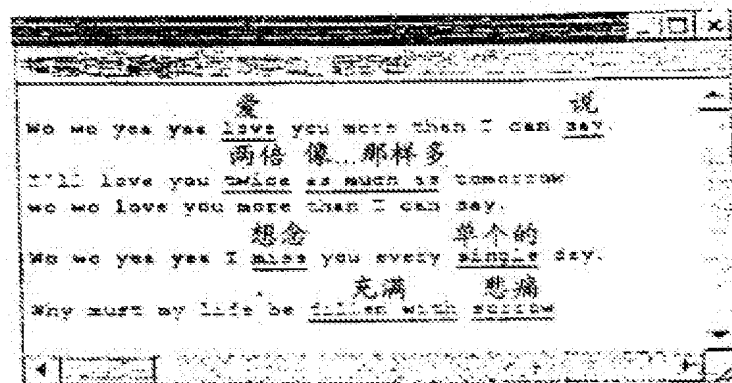 爱 说
Wo wo yea yea love you more than I can say.
两倍 像...那样多
I'll love you twice as much as tomorrow
wo wo love you more than I can say.
想念 单个的
Wo wo yea yea I miss you every single day.
充满 悲痛
Why must my life be filled with sorrow